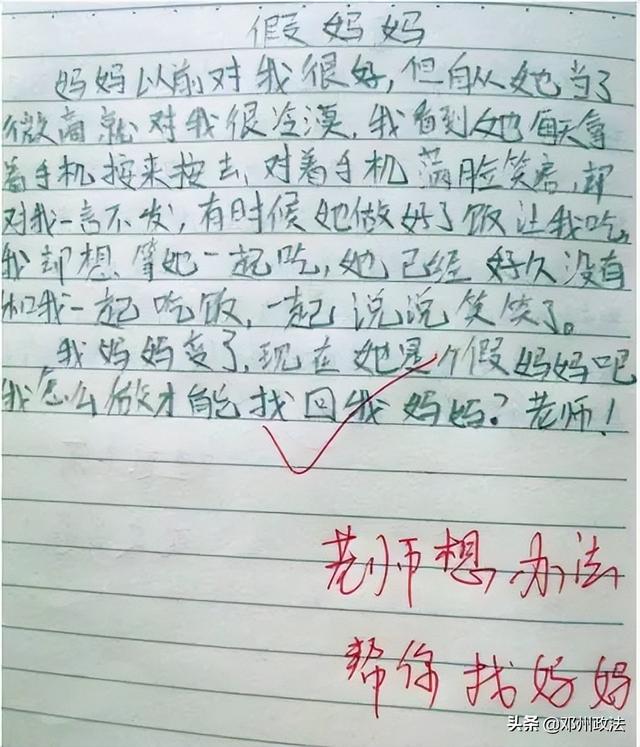 假妈妈
妈妈以前对我很好,但自从她当了
微商就对我很冷漠,我看到她每天拿
着手机按来按去,对着手机满脸笑容,却
对我一言不发,有时候她做好了饭让我吃,
我却想等她一起吃,她已经好久没有
和我一起吃饭,一起说说笑笑了。
我妈妈变了,现在她是个假妈妈吧
我怎么做才能找回我妈妈?老师!
老师想办法
帮你找好妈
头条@邓州政法